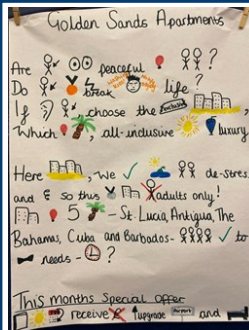 Golden Sands Apartments
Are peaceful ?
Do break life ?
If choose the
Which , all-inclusive luxury
Here , we de-stress
and & so this adults only!
5 - St. Lucia, Antigua, The
Bahamas, Cuba and Barbados- to
needs - ?
This months Special offer
receive upgrade and